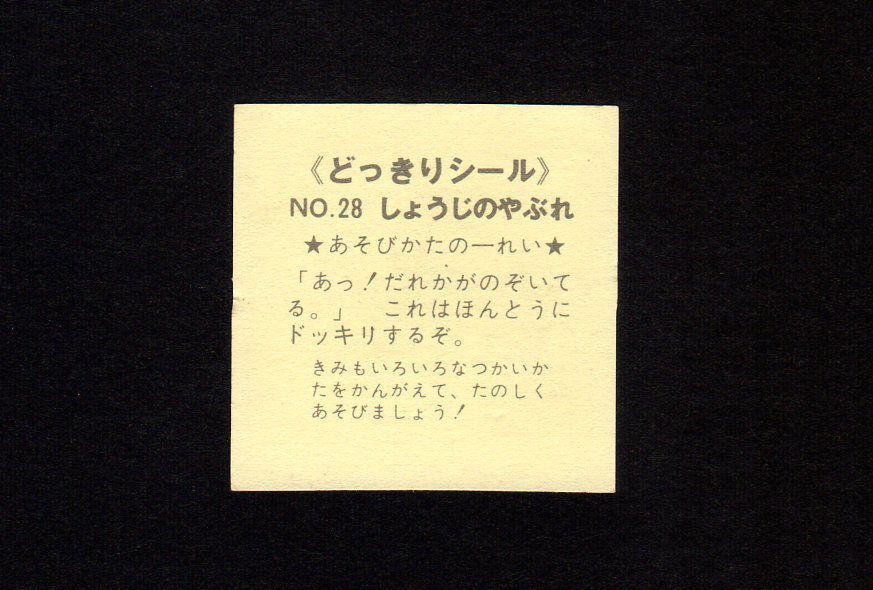 《どっきりシール》
NO.28 しょうじのやぶれ
★あそびかたの一れい★
「あっ！だれかがのぞいて
る。」　これはほんとうに
ドッキリするぞ。
きみもいろいろなつかいか
たをかんがえて、たのしく
あそびましょう！